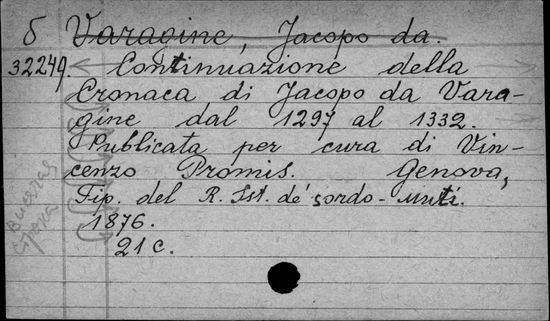 б Varagine, Jacopo da.
32249. Continuazione della
Cronaca di Jacopo da Vara-
gine dal 1297 al 1332.
Publicata per cura di Vin-
cenzo Promis. Genova,
Tip. del R. Ist. de' sordo-muti.
1876.
21 c.